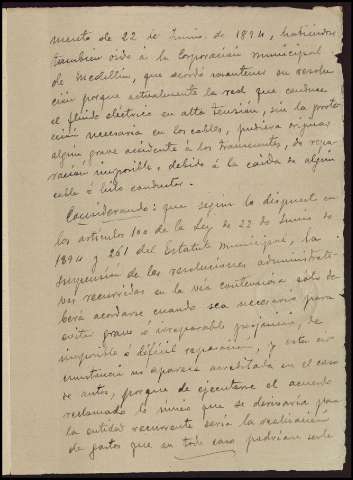 mento de 22 de Junio de 1894, habiendose
tambien oido á la Corporación municipal
de Medellín, que acordó mantener su resolu-
ción porque actualmente la red que conduce
el fluido eléctrico en alta tensión, sin la protec-
ción necesaria en los cables, pudiera originar
algún grave accidente á los transeuntes, de repa-
ración imposible, debido á la caida de algún
cable ó hilo conductor.
Considerando: que segun lo dispuesto en
los artículos 100 de la Ley de 22 de Junio de
1894 y 261 del Estatuto Municipal, la
suspensión de las resoluciones administrati-
vas recurridas en la via contenciosa sólo de-
berá acordarse cuando sea necesario para
evitar grave ó irreparable perjuicio, de
imposible ó dificil reparación, y esta cir-
cunstancia no aparece acreditada en el caso
de autos, porque de ejecutarse el acuerdo
reclamado lo único que se derivaria para
la entidad recurrente seria la realización
de gastos que en todo caso podrían serle